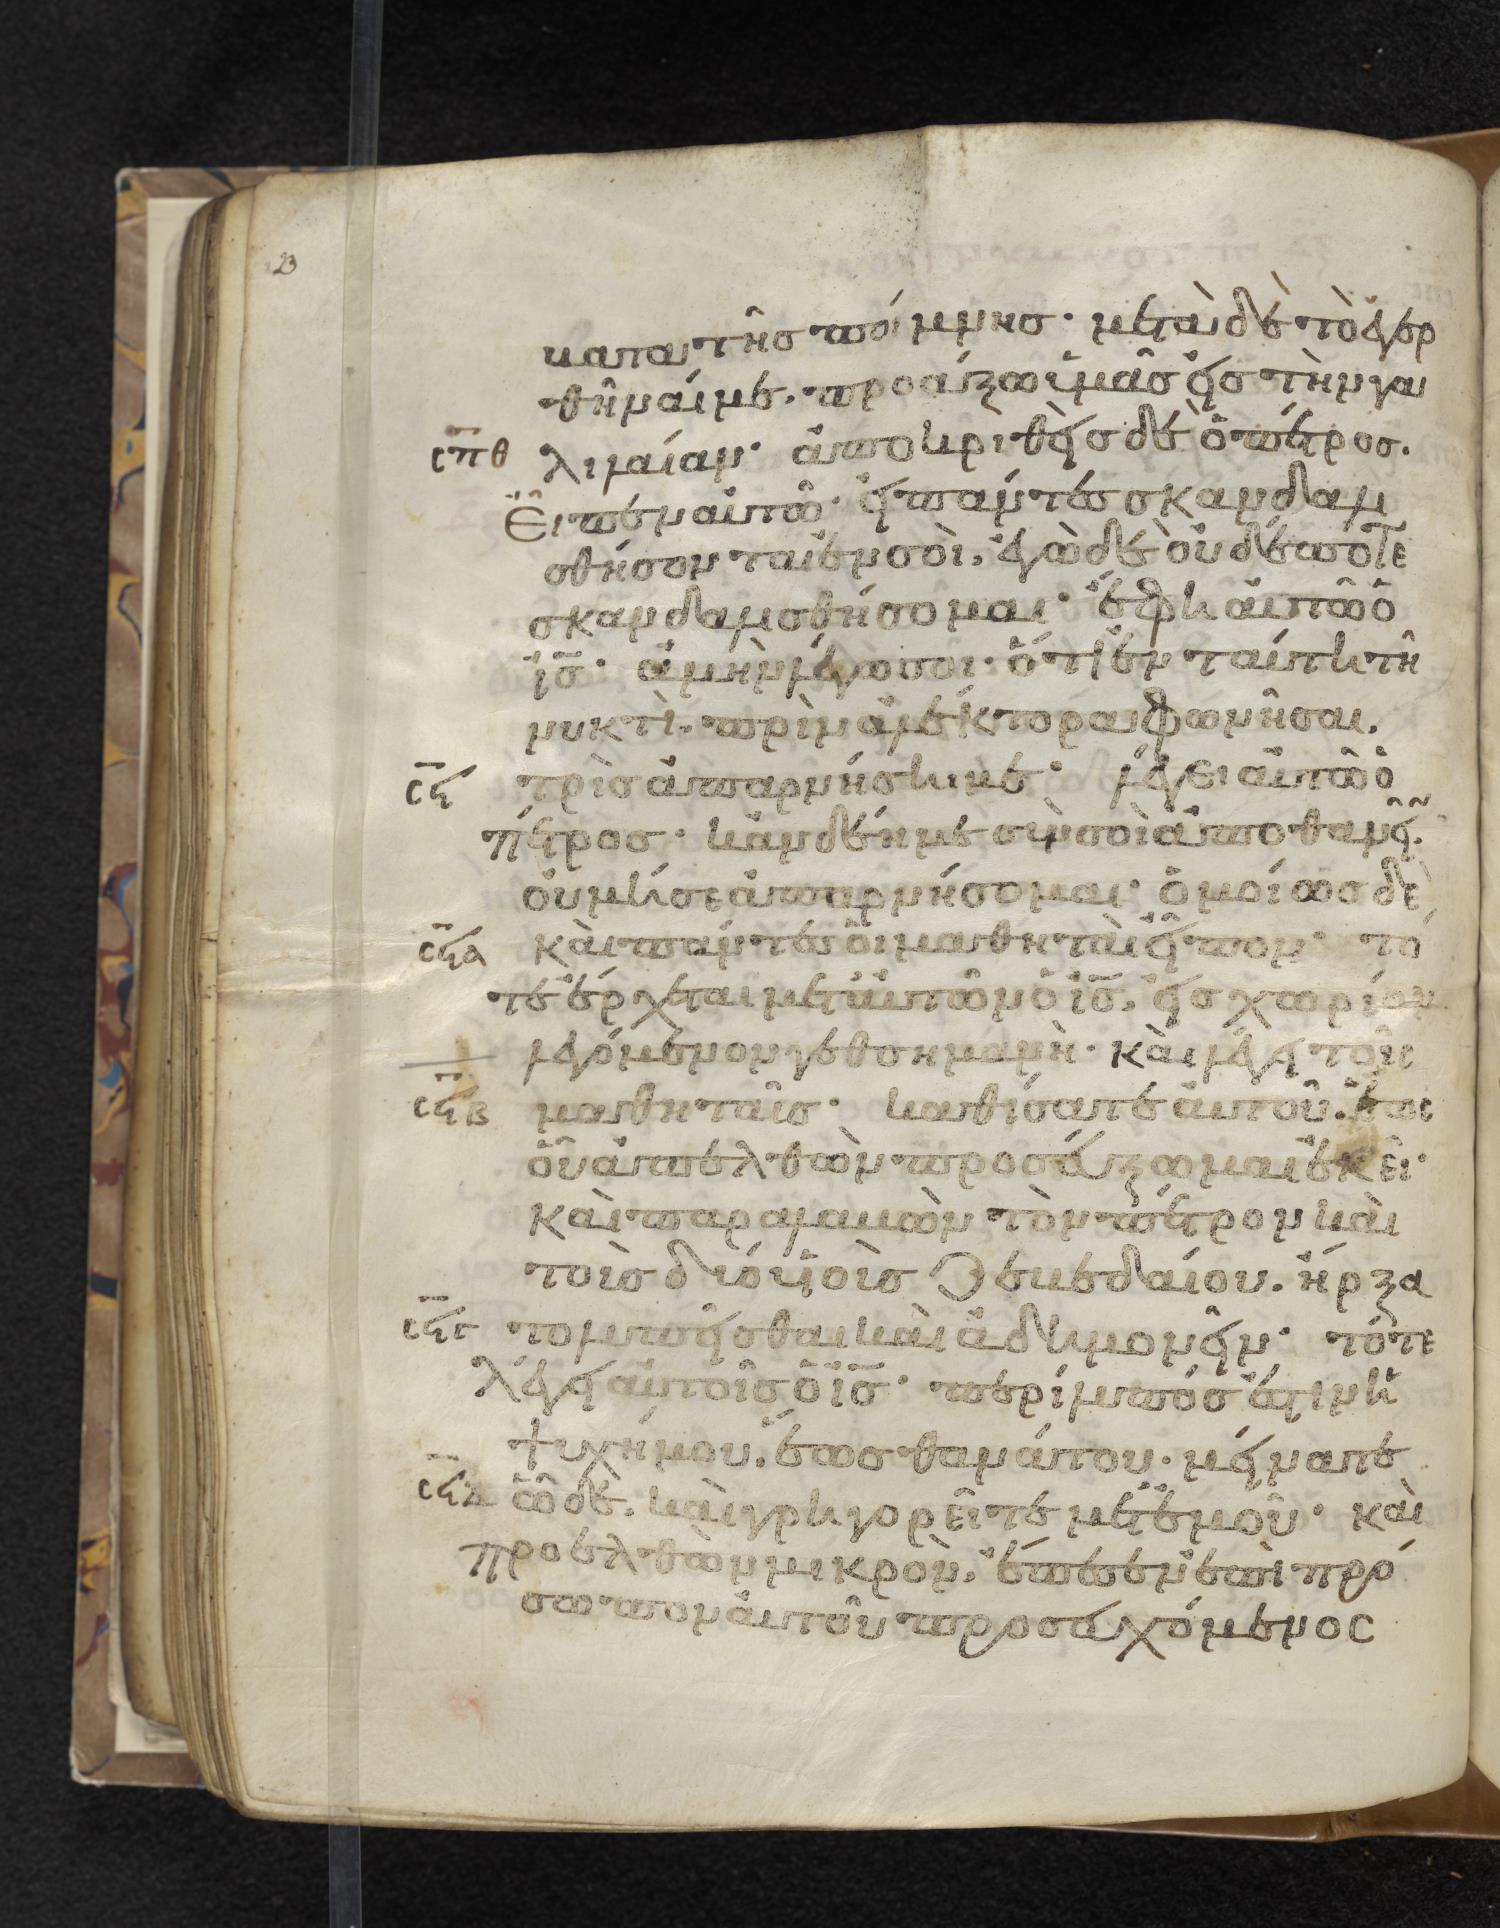 23
κατα τῆς ποίμνης· μετὰ δὲ τὸ ἐγερ
θῆναί με. προάξω ὑμᾶς εἰς τὴν γα
σπθ λιλαίαν· ἀποκριθεὶς δὲ ὁ πέτρος.
Εἶπεν αὐτῶ· εἰ πάντες σκανδαλι
σθήσονται ἐν σοὶ. ἐγὼ δὲ οὐδέποτε
σκανδαλισθήσομαι· ἔφη αὐτῶ ὁ
ις̅· ἀμὴν λέγω σοι· ὅτι ἐν ταύτη τῆ
νυκτὶ. πρὶν ἀλέκτορα φωνῆσαι.
σϟ τρὶς ἀπαρνήση με· λέγει αὐτῶ ὁ
πέτρος· κἂν δέη με σὺν σοὶ ἀποθανεῖν.
οὐ μή σε ἀπαρνήσομαι· ὁμοίως δὲ
σϟα καὶ πάντες οἱ μαθηταὶ εἶπον· τό
τε ἔρχεται μετ' αὐτῶν ὁ ις̅. εἰς χωρίον
λεγόμενον γεθσημανὴ· καὶ λέγει τοῖς
σϟβ μαθηταῖς· καθίσατε αὐτοῦ. ἕως
οὗ ἀπελθὼν προσεύξωμαι ἐκεῖ·
καὶ παραλαβὼν τὸν πέτρον καὶ
τοὺς δύο υἱοὺς ζεβεδαίου. ἤρξα
σϟγ το λυπεῖσθαι καὶ ἀδημονεῖν· τότε
λέγει αὐτοῖς ὁ ις̅· περίλυπός ἐστιν ἡ
ψυχή μου. ἕως θανάτου· μείνατε
σϟδ ὧδε. καὶ γρηγορεῖτε μετ' ἐμοῦ· καὶ
προελθὼν μικρὸν. ἔπεσεν ἐπὶ πρό
σωπον αὐτοῦ προσευχόμενος